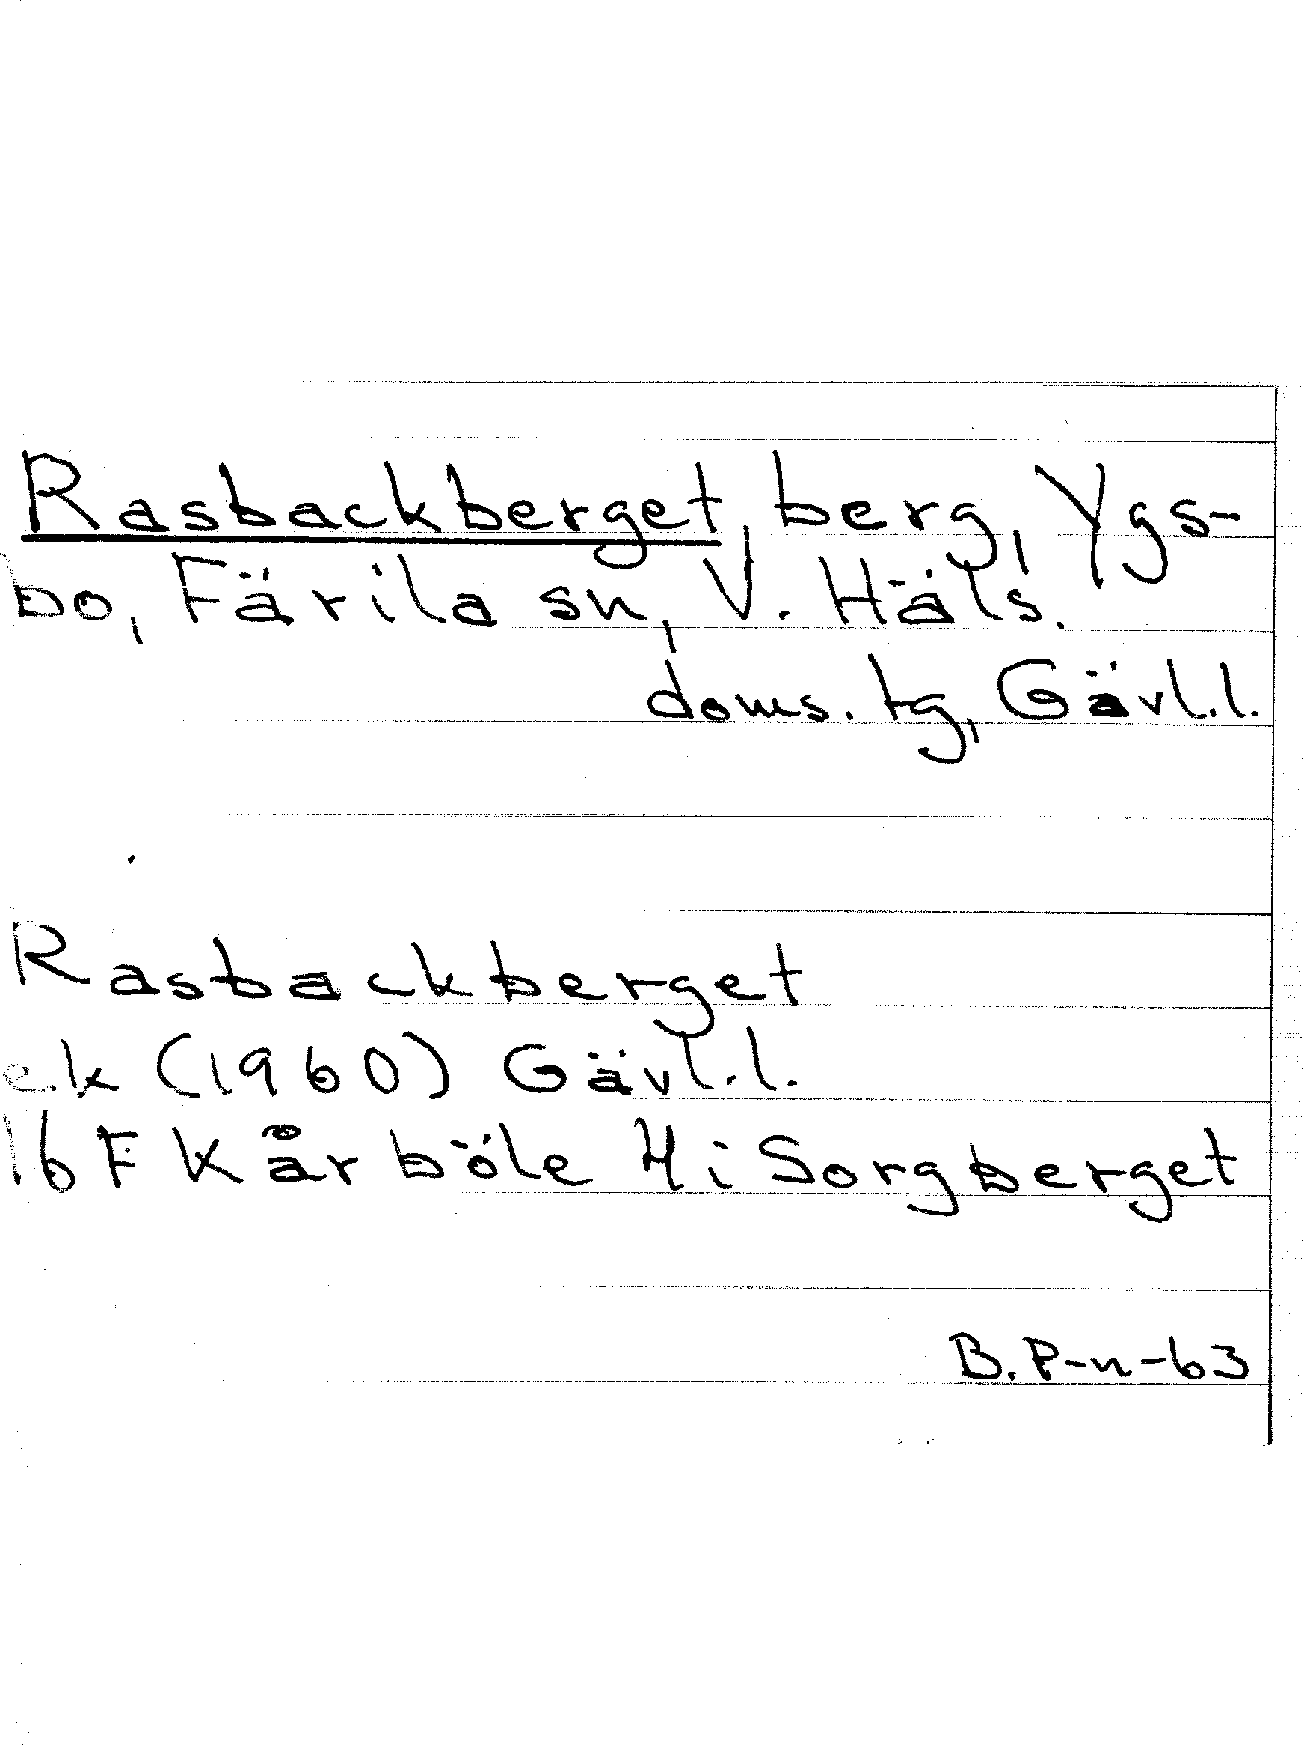 Rasbackberget, berg, Ygs-
bo, Färila sn, V. Häls.
doms. tg, Gävl.l.
Rasbackberget
ek (1960) Gävl.l.
16 F Kårböle 4 i Sorgberget
B. P-n-63